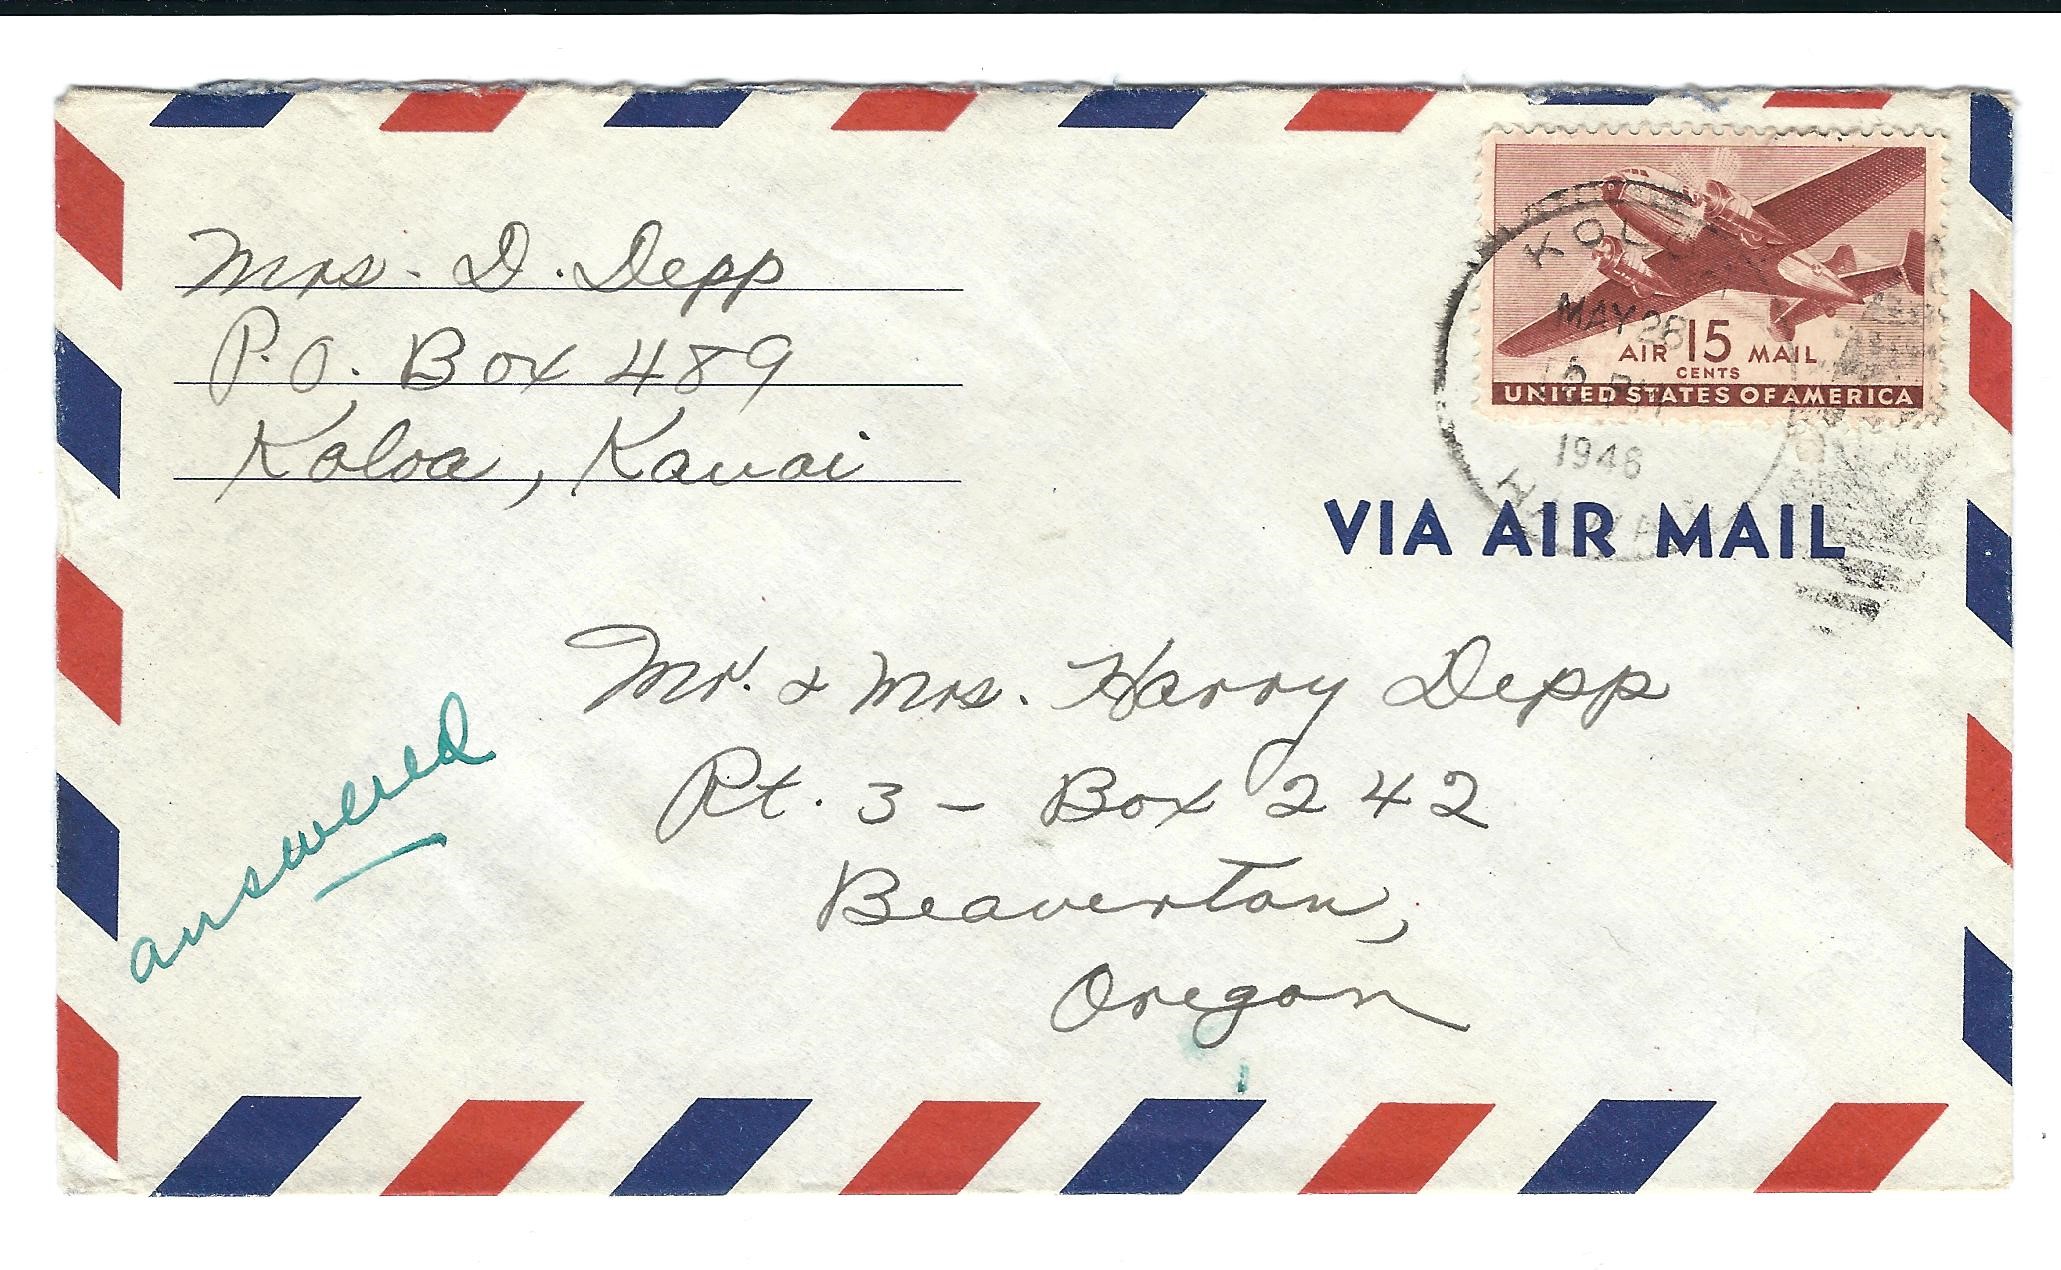 Mrs. D. Depp
P.O. Box 489
Koloa, Kauai
AIR 15 MAIL
CENTS
UNITED STATES OF AMERICA
KOLOA
MAY 28
PM
1946
HAWAII
VIA AIR MAIL
Mr. & Mrs. Harry Depp
Rt. 3 - Box 242
Beaverton,
Oregon
answered